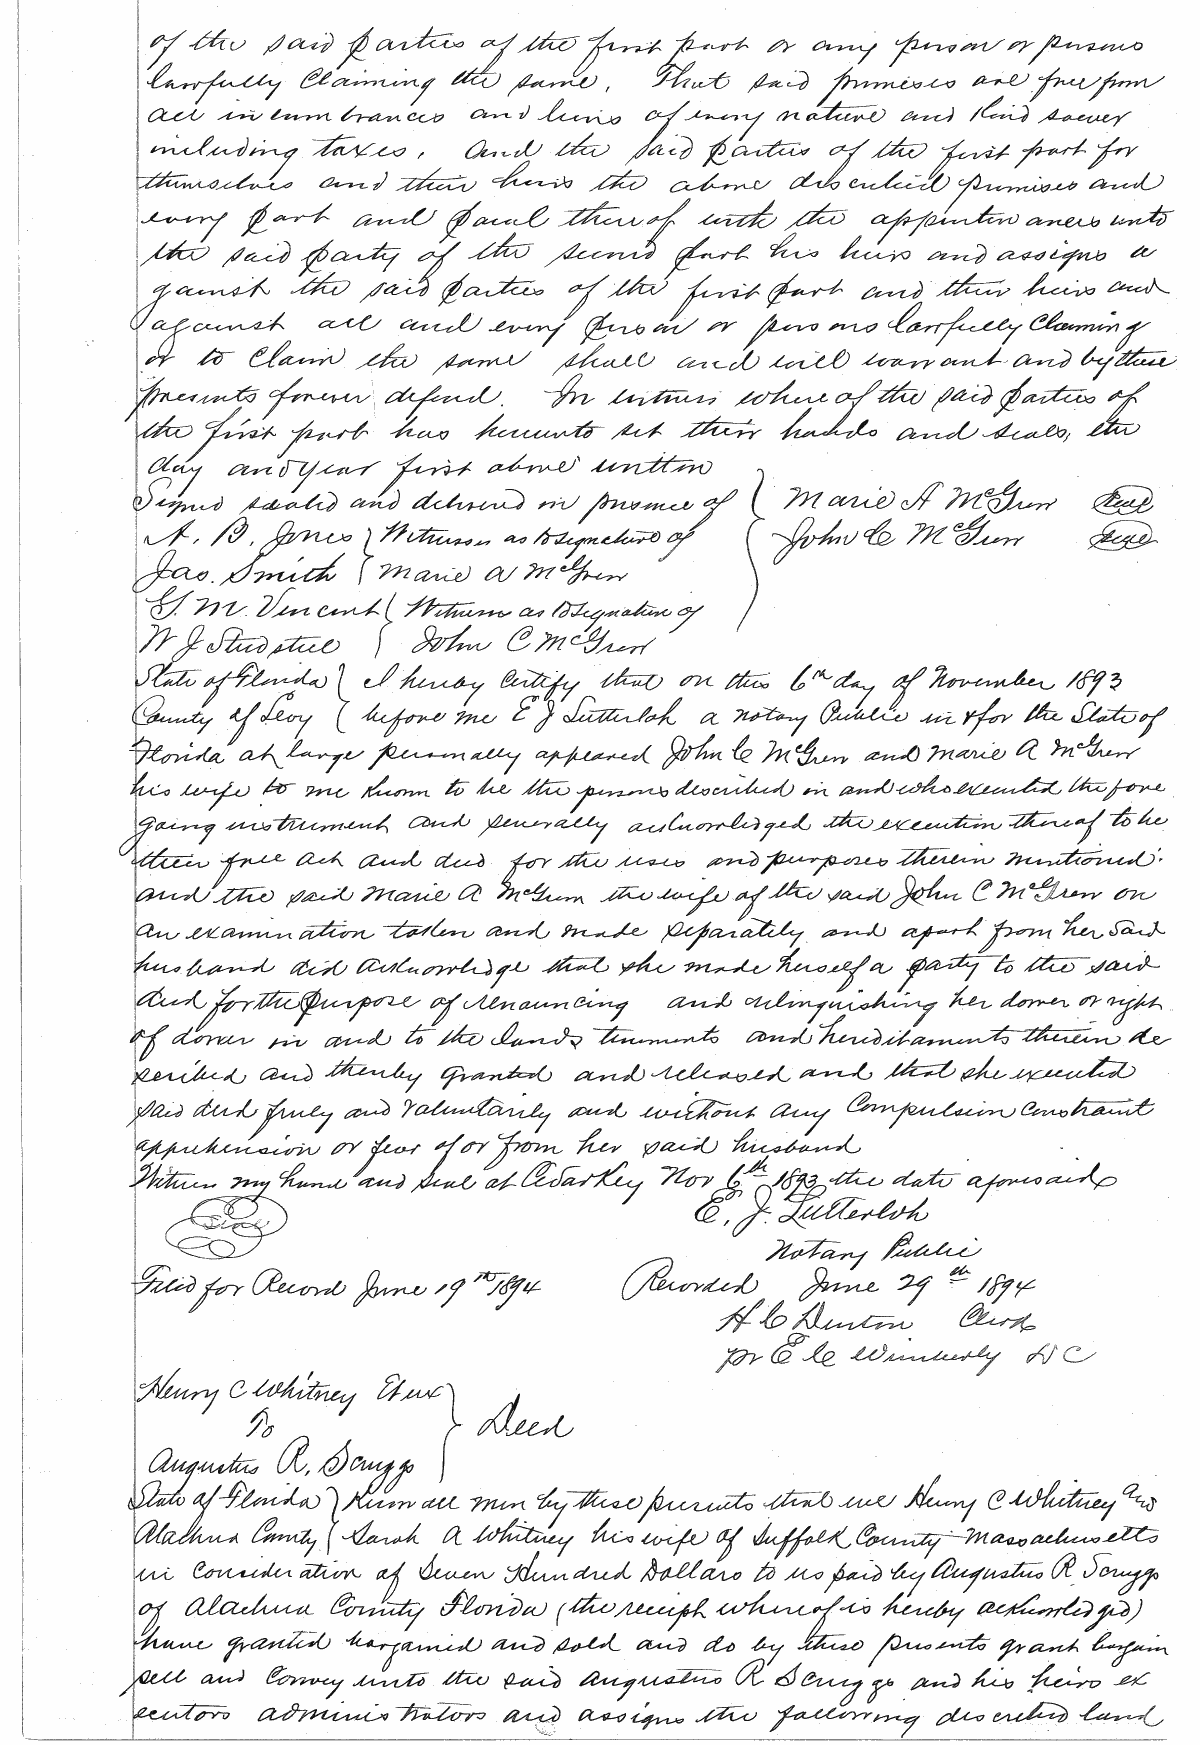 of the said parties of the first part or any person or persons
lawfully Claiming the same. That said premises are free from
all incumbrances and liens of every nature and Kind soever
including taxes. And the said parties of the first part for
themselves and their heirs the above described premises and
every part and parcel thereof with the appurtenances unto
the said party of the second part his heirs and assigns a
gainst the said parties of the first part and their heirs and
against all and every person or persons lawfully Claiming
or to Claim the same shall and will warrant and by these
presents forever defend. In witness whereof the said parties of
the first part has hereunto set their hands and seals, the
day and year first above written
Signed sealed and delivered in presence of ( Marie A McGrew Seal
A. B. Jones ) Witnesses as to signature of ( John C McGrew Seal
Jas. Smith ( Marie A McGrew
G. M. Vincent ( Witness as to signature of
W J Studstill ) John C McGrew
State of Florida ) I hereby Certify that on this 6th day of November 1893
County of Levy ( before me E J Lutterloh a Notary Public in & for the State of
Florida at large personally appeared John C McGrew and Marie A McGrew
his wife to me Known to be the persons described in and who executed the fore
going instrument and severally acknowledged the execution thereof to be
their free act and deed for the uses and purposes therein mentioned:
and the said Marie A McGrew the wife of the said John C McGrew on
an examination taken and made separately and apart from her said
husband did acknowledge that she made herself a party to the said
deed for the purpose of renouncing and relinquishing her dower or right
of dower in and to the lands tenements and hereditaments therein de
scribed and thereby granted and released and that she executed
said deed freely and voluntarily and without any Compulsion Constraint
apprehension or fear of or from her said husband
Witness my hand and seal at Cedar Key Nov 6th 1893 the date aforesaid
E. J. Lutterloh
Seal
Notary Public
Filed for Record June 19th 1894 Recorded June 29th 1894
H C Denton Clerk
pr E C Wimberly D C
Henry C Whitney Et ux
To } Deed
Augustus R. Scruggs
State of Florida ) Know all men by these presents that we Henry C Whitney and
Alachua County ( Sarah A Whitney his wife of Suffolk County Massachusetts
in Consideration of Seven Hundred Dollars to us paid by Augustus R Scruggs
of Alachua County Florida (the receipt whereof is hereby acknowledged)
have granted bargained and sold and do by these presents grant bargain
sell and Convey unto the said Augustus R Scruggs and his heirs ex
ecutors administrators and assigns the following described land